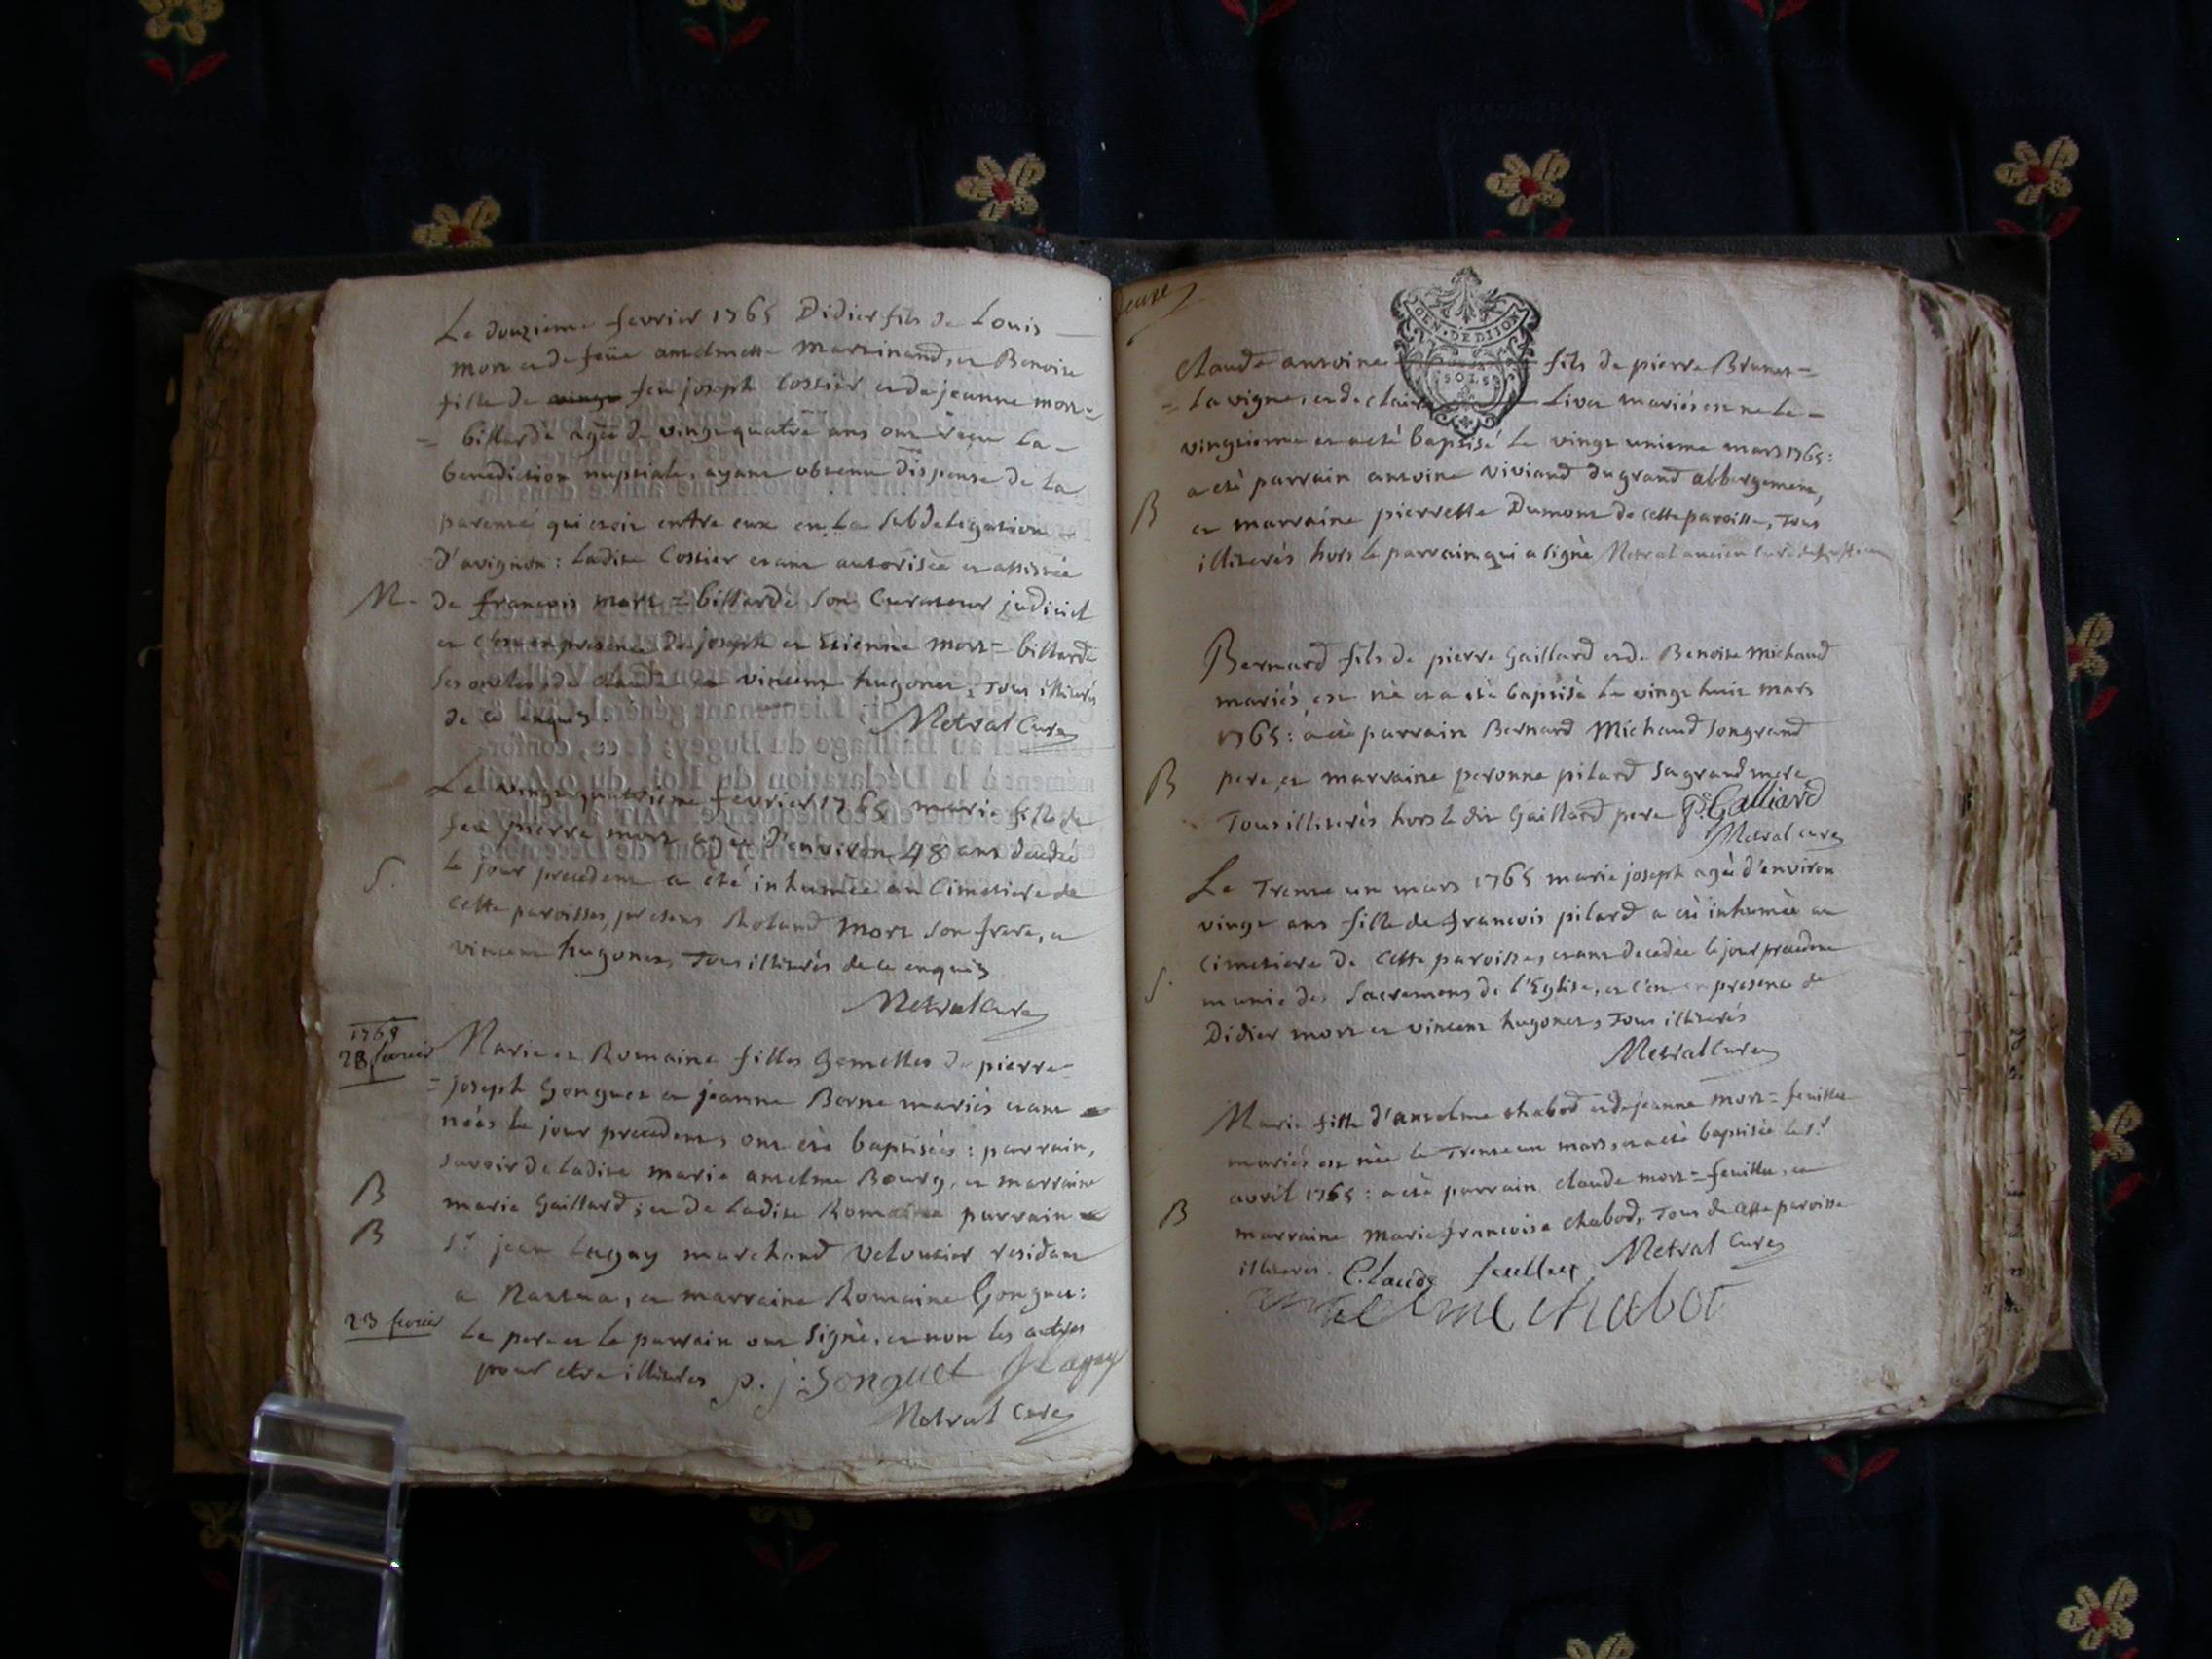 Le douzieme fevrier 1765 Didier fils de Louis
mort et de feüe anselmette Martinand, et Benoite
fille de feu joseph Cottier et de jeanne mort=
= billarde agée de vingt quatre ans ont reçu la
benediction nuptiale, ayant obtenu dispense de la
parenté qui etoit entre eux en la subdelegation
d'avignon : ladite Cottier etant autorisée et assistée
M. de francois mort = billarde son Curateur judiciel
et en presence de joseph et Etienne mort = billarde
ses oncles, de Claude et vincent hugonet, Tous illiterés
de ce enquis. Metral Curé
Le vingt quatrieme fevrier 1765 marie fille de
feu pierre mort agée d'environ 48 ans decedée
S. le jour precedent a eté inhumée au Cimetiere de
cette paroisse, presens Roland mort son frere, et
vincent hugonet, Tous illiterés de ce enquis
Metral Curé
1765
28 fevrier
Marie et Romaine filles Gemelles de pierre
= joseph Gonguet et jeanne Borne mariés etant
nées le jour precedent, ont été baptisées : parrain,
savoir de ladite marie anselme Bourg, et marraine
B marie Gaillard ; et de ladite Romaine parrain
B Sr jean Lagay marchand Veloutier residant
a Nantua, et marraine Romaine Gonguet :
23 fevrier
Le pere et le parrain ont signé, et non les autres
pour etre illiterés p. j. Gonguet J Lagay
Metral Curé
GEN. DE DIJON
SOLS
Claude antoine fils de pierre Brunet =
= Lavigne, et de claire Livet mariés est né le
vingtieme et a eté baptisé le vingt unieme mars 1765 :
a eté parrain antoine Viviand du grand abbergement,
B et marraine pierrette Dumont de cette paroisse, Tous
illiterés hors le parrain qui a signé Metral ancien curé
Bernard fils de pierre Gaillard et de Benoite Michaud
mariés, est né et a eté baptisé le vingt huit mars
1765 : a eté parrain Bernard Michaud son grand
B pere, et marraine peronne pilard sa grand mere
Tous illiterés hors le dit Gaillard pere P. Galliard
Metral curé
Le Trente un mars 1765 marie joseph agée d'environ
vingt ans fille de francois pilard a eté inhumée au
Cimetiere de cette paroisse, etant decedée le jour precedent
S. munie des Sacremens de l'Eglise, et c'en presence de
Didier mort et vincent hugonet, Tous illiterés
Metral Curé
Marie fille d'anselme chabod et de jeanne mort = feuille
mariés est née le Trente un mars, et a eté baptisée le 1.r
avril 1765 : a eté parrain claude mort = feuille, et
B marraine Marie francoise chabod, Tous de cette paroisse
illiterés. Claude feulley Metral Curé
anselme chabot